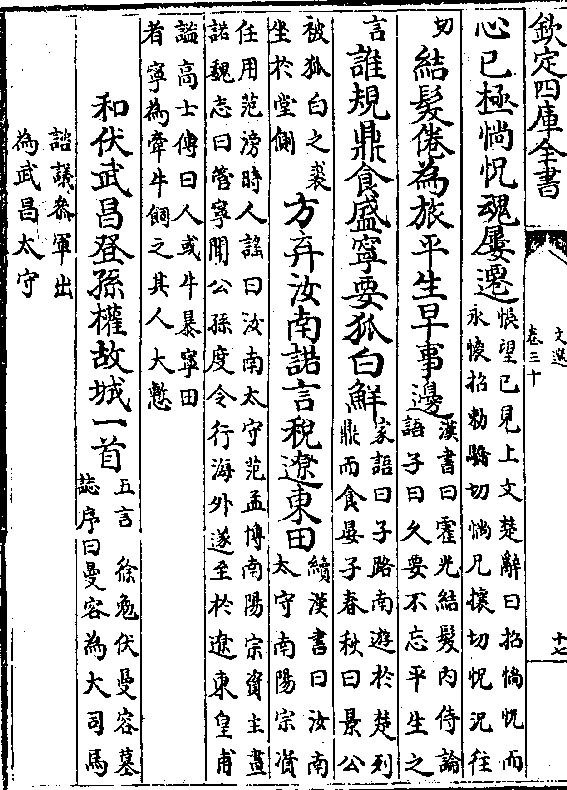 欽定四庫全書
文選
卷三十
十七
心已極惝怳魂屢遷
悵望已見上文楚辭曰招惝怳而
永懷招勑驕切惝凡攘切怳況往
切
結髪倦為旅平生早事邊
漢書曰霍光結髪内侍論
語子曰久要不忘平生之
言
誰規鼎食盛寧要狐白鮮
家語曰子路南遊於楚列
鼎而食晏子春秋曰景公
被狐白之裘
坐於堂側
方弃汝南諾言稅遼東田
續漢書曰汝南
太守南陽宗資
任用范滂時人謡曰汝南太守范孟博南陽宗資主畫
諾魏志曰管寧聞公孫度令行海外遂至於遼東皇甫
謐高士傳曰人或牛暴寧田
者寧為牽牛飼之其人大慙
和伏武昌登孫權故城一首
五言 徐勉伏曼容墓
誌序曰曼容為大司馬
諮議叅軍出
為武昌太守